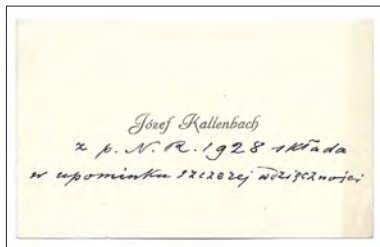 Józef Kallenbach
z p. N. R. 1928 składa
w upominku szczerej wdzięczności